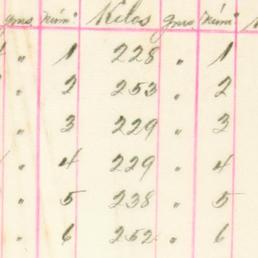 grms núm° Kilos grms núm°
" 1 228 " 1
" 2 253 " 2
3 229 " 3
4 229 " 4
" 5 238 " 5
" 6 252 " 6